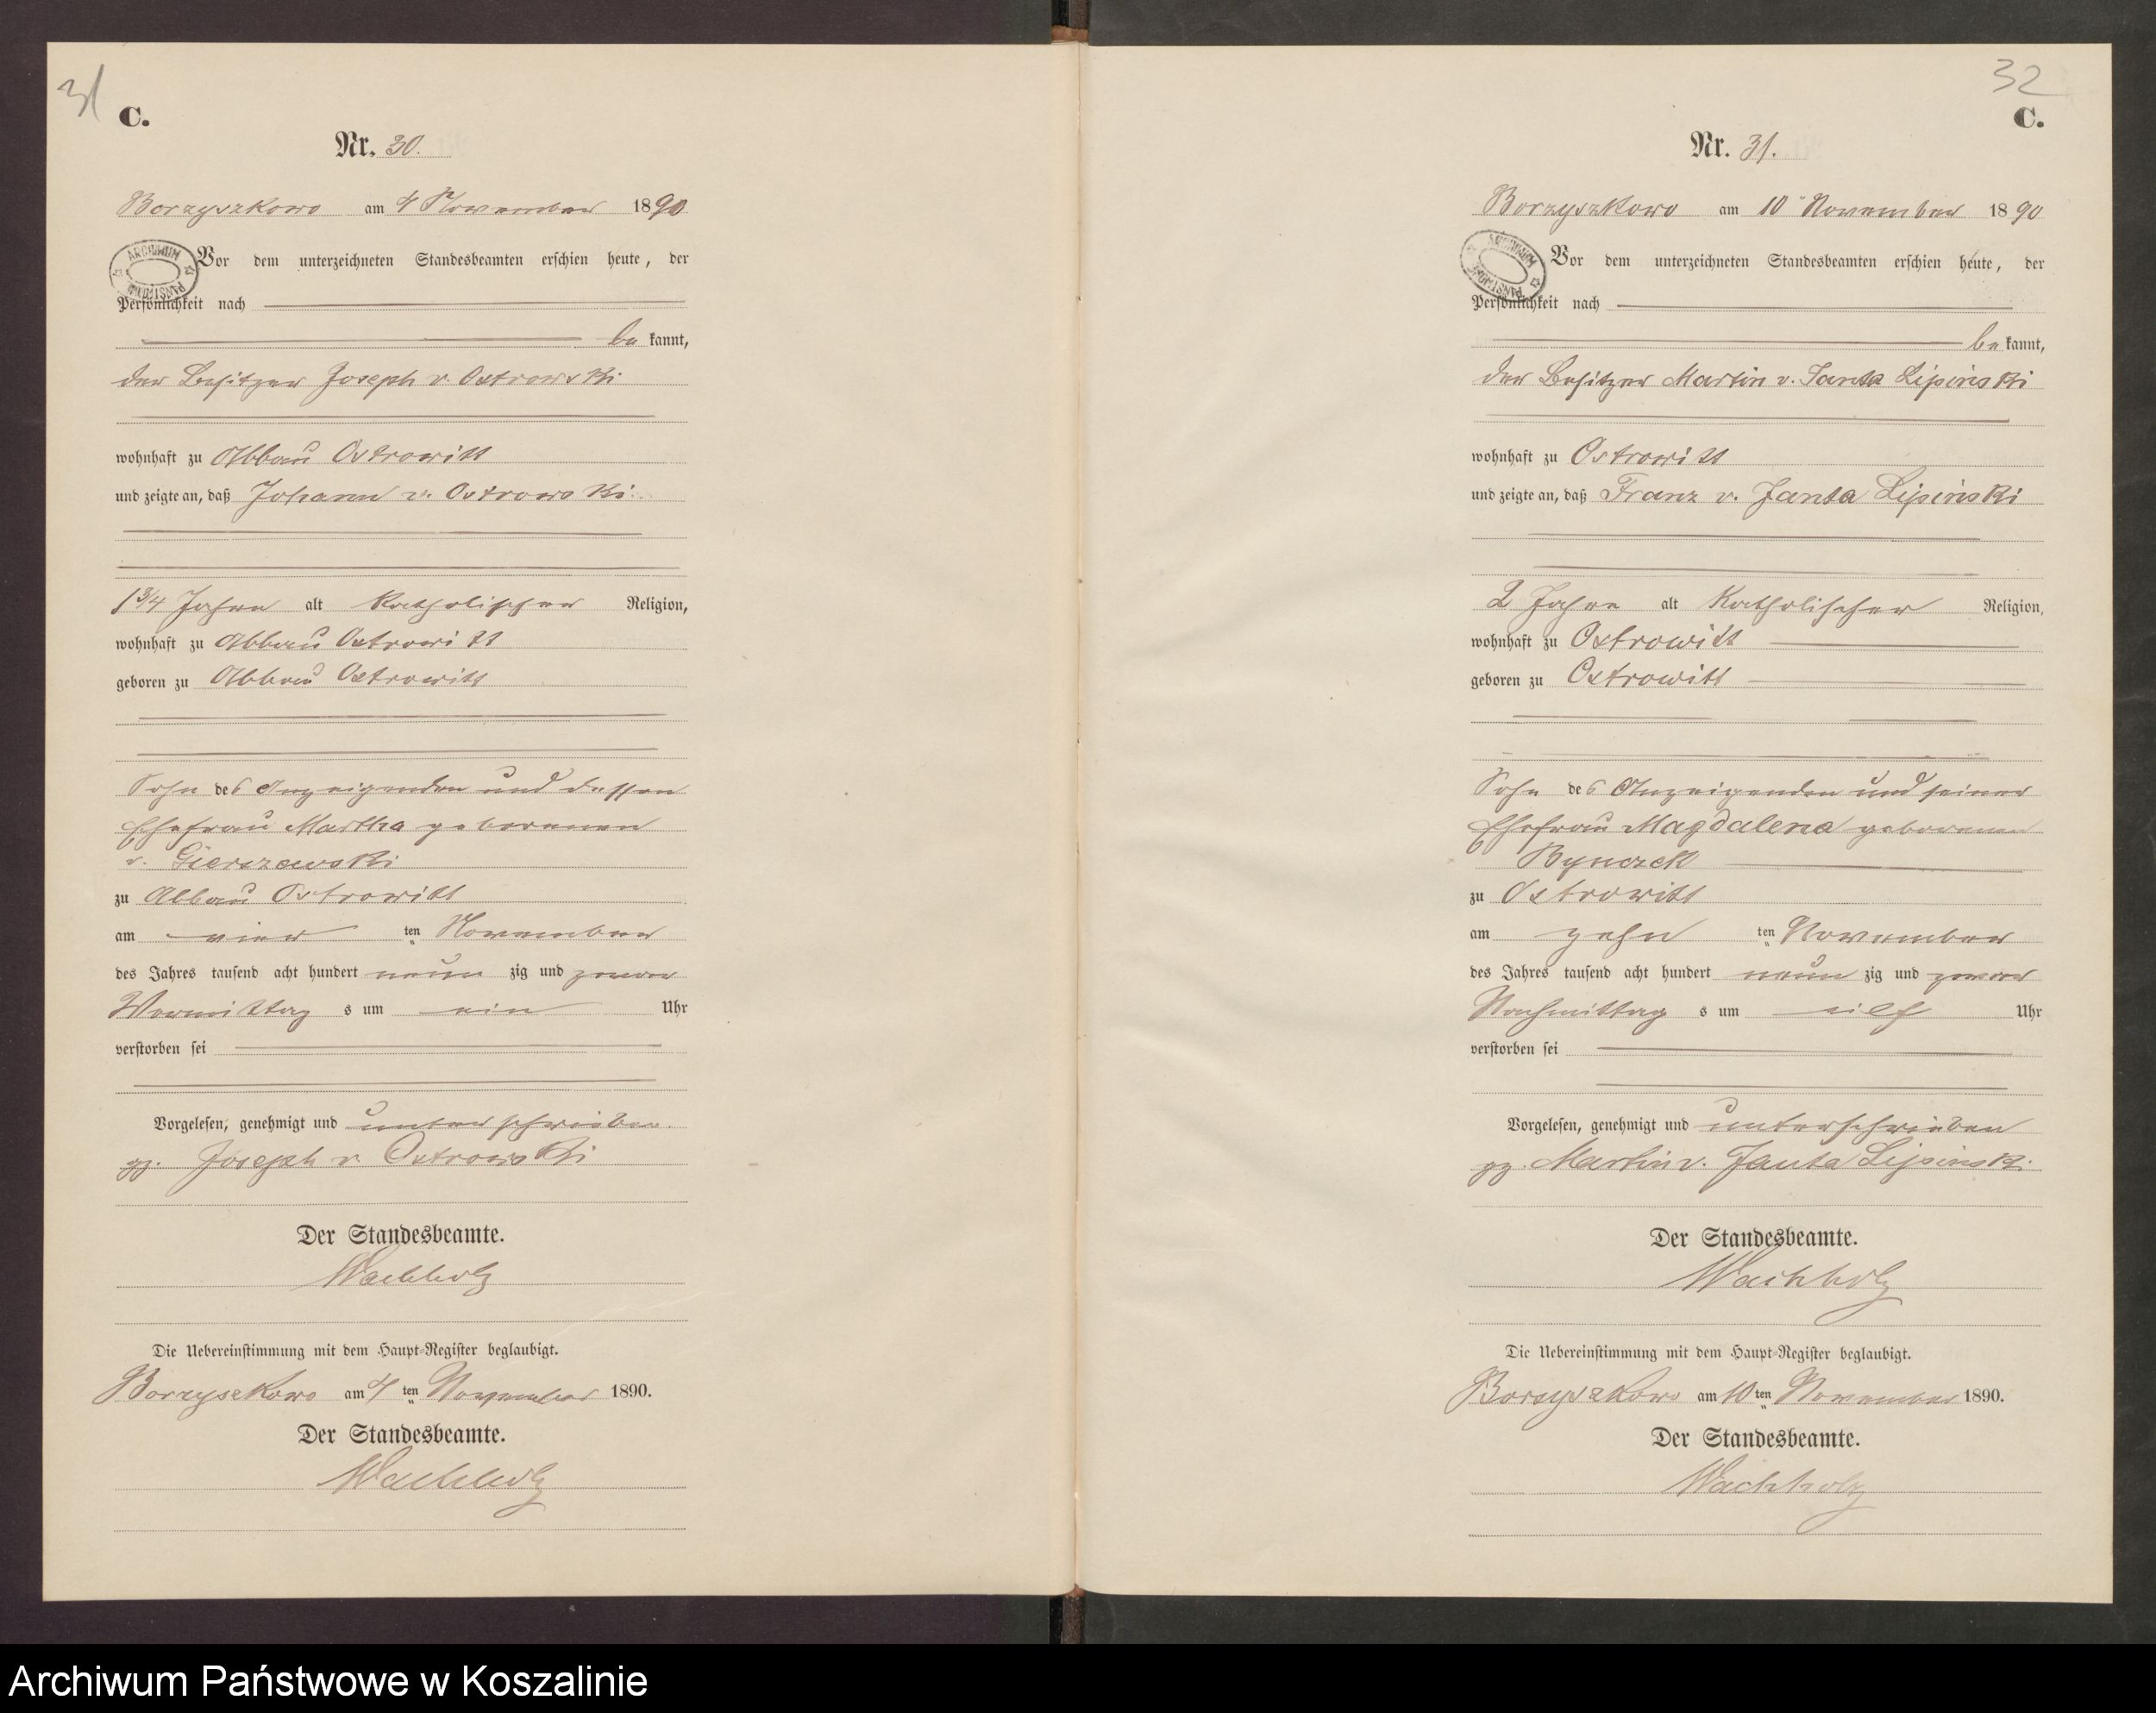 31
C.
Nr. 30.
Borzyszkowo am 4 November 1890
Vor dem unterzeichneten Standesbeamten erschien heute, der
Persönlichkeit nach
be kannt,
der Besitzer Joseph v. Ostrowski
wohnhaft zu Abbau Ostrowitt
und zeigte an, daß Johann v. Ostrowski
1 3/4 Jahre alt katholischer Religion,
wohnhaft zu Abbau Ostrowitt
geboren zu Abbau Ostrowitt
Sohn des Anzeigenden und dessen
Ehefrau Martha geborenen
v. Gierszewski
zu Abbau Ostrowitt
am vier ten November
des Jahres tausend acht hundert neun zig und zwar
Vormittag s um ein Uhr
verstorben sei
Vorgelesen, genehmigt und unterschrieben.
gz. Joseph v Ostrowski
Der Standesbeamte.
Wachholz
Die Uebereinstimmung mit dem Haupt-Register beglaubigt.
Borzyszkowo am 4 ten November 1890.
Der Standesbeamte.
Wachholz
32
C.
Nr. 31.
Borzyszkowo am 10 November 1890
Vor dem unterzeichneten Standesbeamten erschien heute, der
Persönlichkeit nach
be kannt,
der Besitzer Martin v. Janta Lipinski
wohnhaft zu Ostrowitt
und zeigte an, daß Franz v. Janta Lipinski
2 Jahre alt katholischer Religion,
wohnhaft zu Ostrowitt
geboren zu Ostrowitt
Sohn des Anzeigenden und seiner
Ehefrau Magdalena geborenen
Bynczek
zu Ostrowitt
am zehn ten November
des Jahres tausend acht hundert neun zig und zwar
Nachmittag s um eilf Uhr
verstorben sei
Vorgelesen, genehmigt und unterschrieben
gz. Martin v. Janta Lipinski.
Der Standesbeamte.
Wachholz
Die Uebereinstimmung mit dem Haupt-Register beglaubigt.
Borzyszkowo am 10 ten November 1890.
Der Standesbeamte.
Wachholz
Archiwum Państwowe w Koszalinie